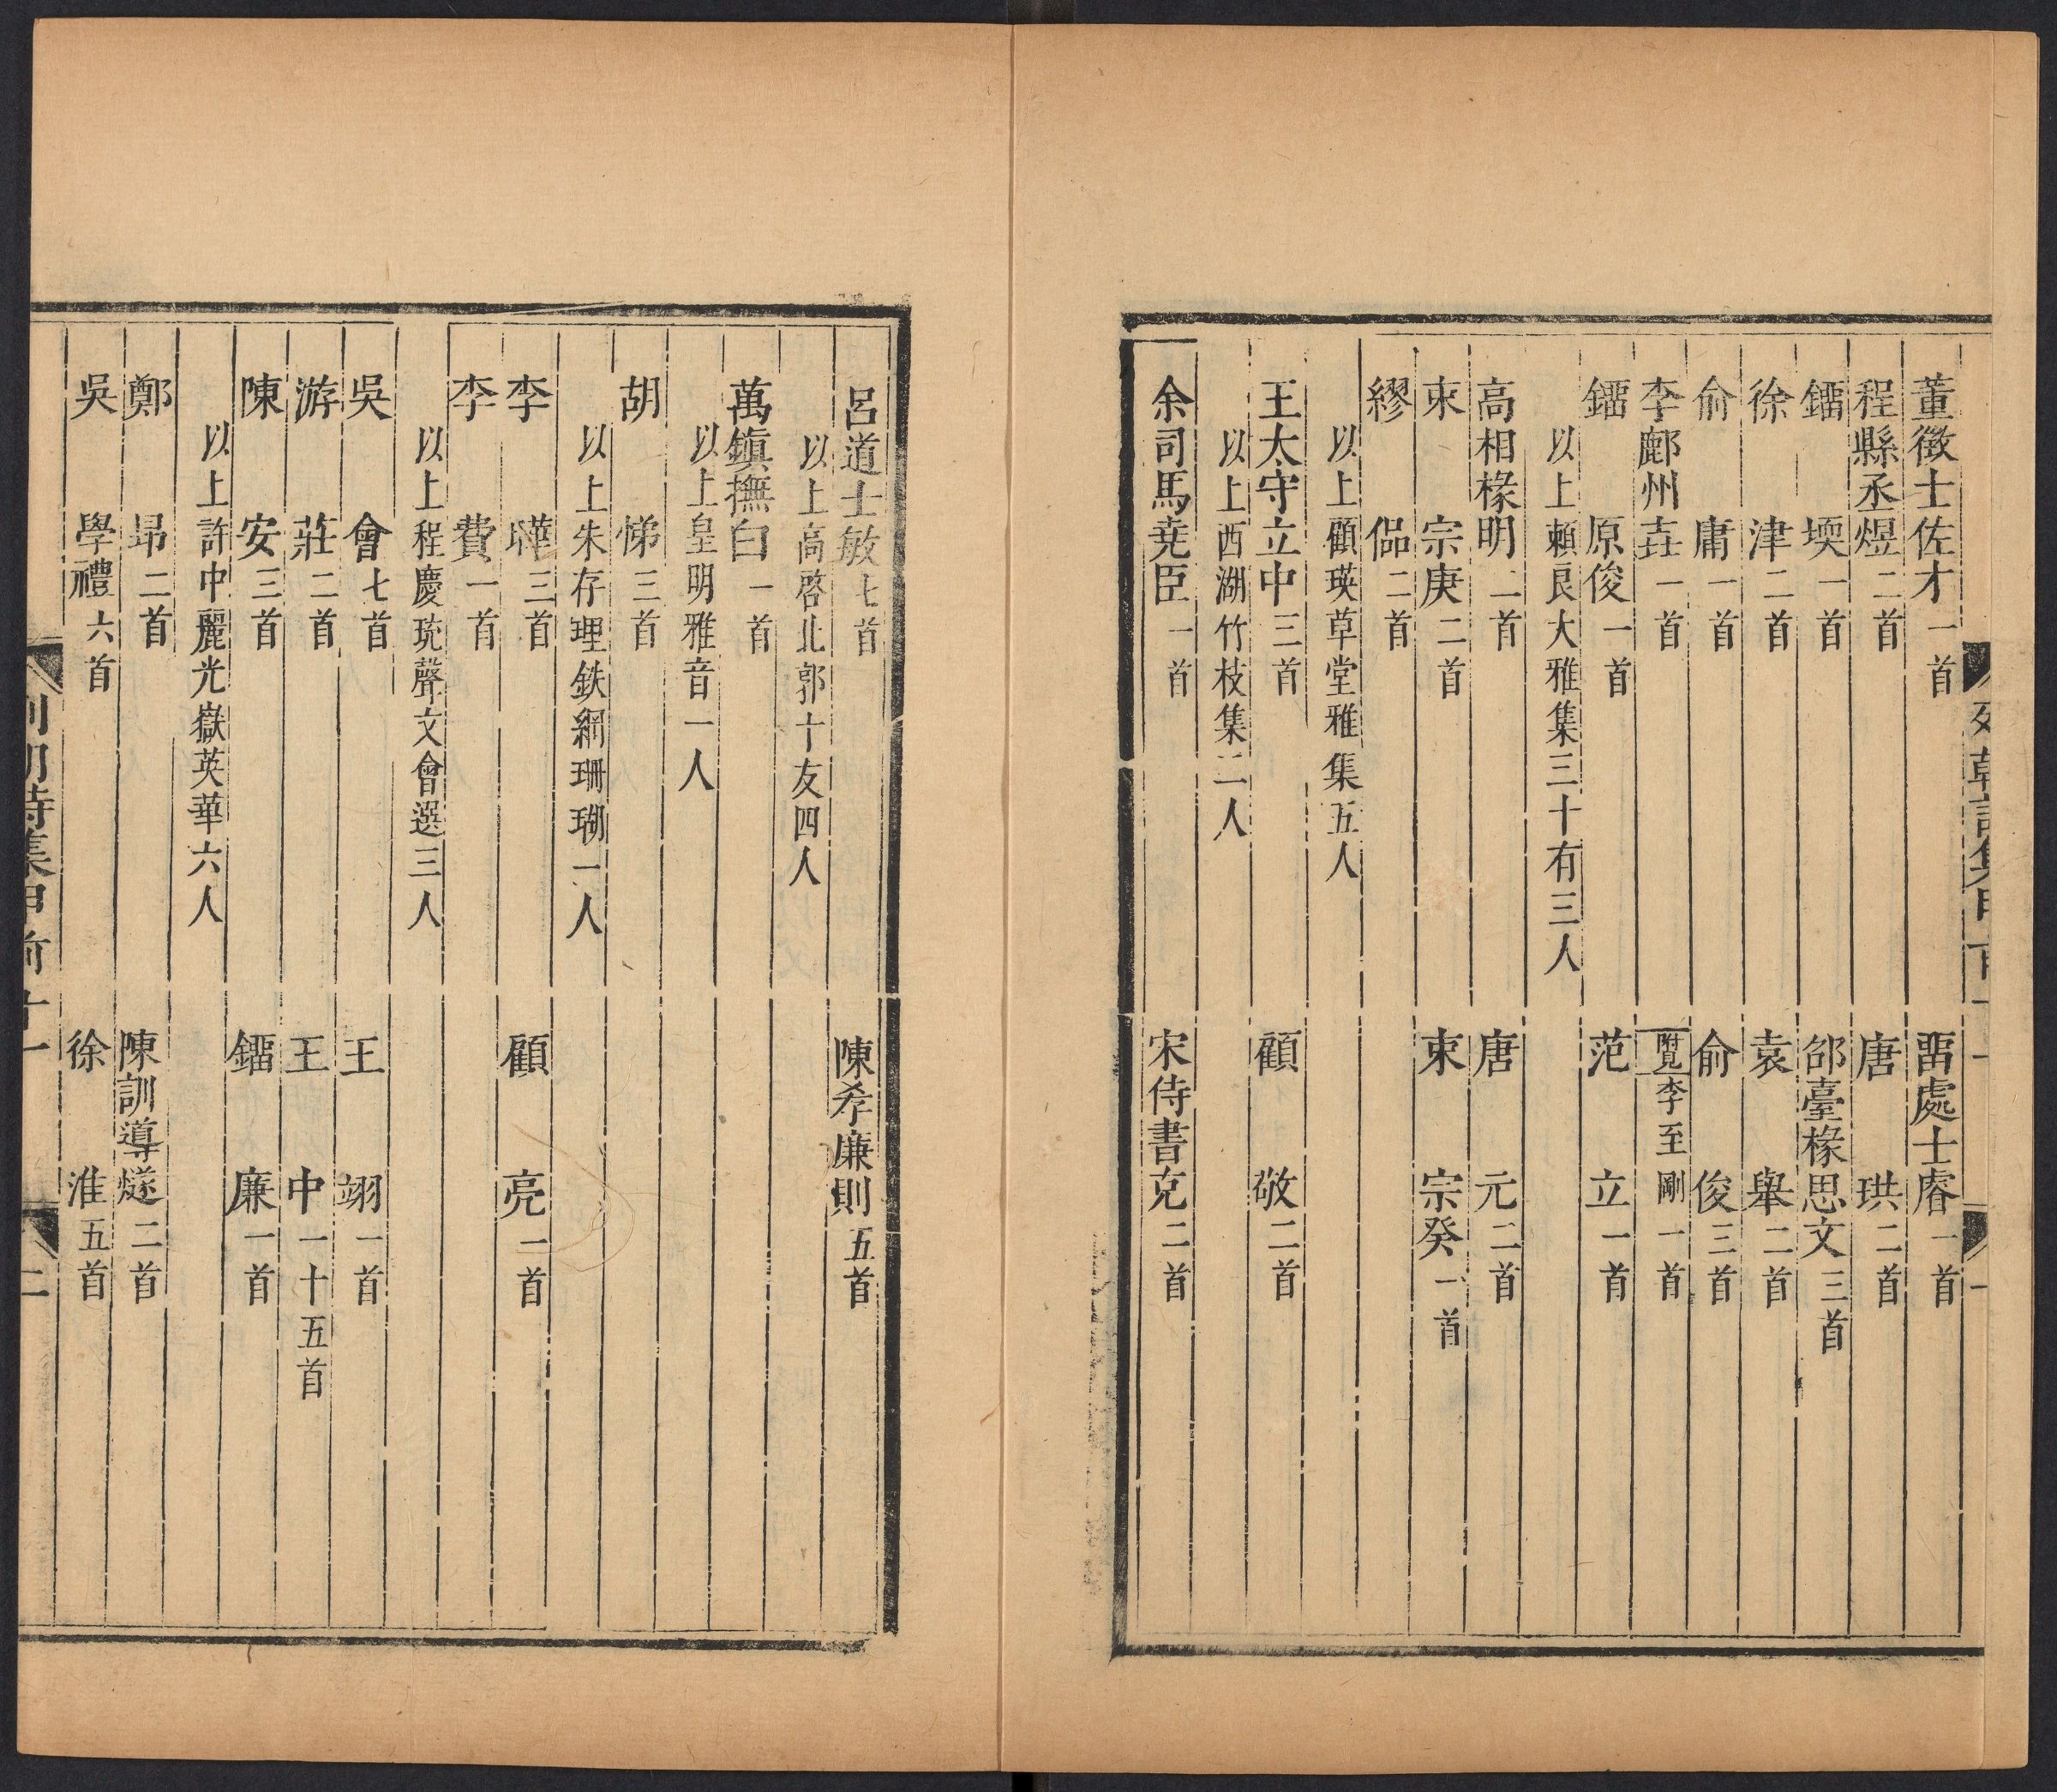 董徵士佐才一首　畱處士睿一首
程縣丞煜二首　唐珙二首
鐂堧一首　邰臺椽思文三首
徐津二首　袁舉二首
俞庸一首　俞俊三首
李鄜州垚一首　附見李至剛一首
鐂原俊一首　范立一首
以上賴良大雅集三十有三人
高相椽明二首　唐元二首
束宗庚二首　束宗癸一首
繆侣二首
以上顧瑛草堂雅集五人
王太守立中三首　顧敬二首
以上西湖竹枝集二人
余司馬尭臣一首　宋侍書克二首
呂道士敏七首　陳孝廉則五首
以上高啓北郭十友四人
萬鎮撫白一首
以上皇明雅音一人
胡悌三首
以上朱存理鉄網珊瑚一人
李曄三首　顧亮二首
李費一首
以上程慶珫聲文會選三人
吳會七首　王翊一首
游莊二首　王中一十五首
陳安三首　鐂廉一首
以上許中麗光嶽英華六人
鄭昻二首　陳訓導燧二首
吳學禮六首　徐淮五首
列朝詩集甲前　十一　二